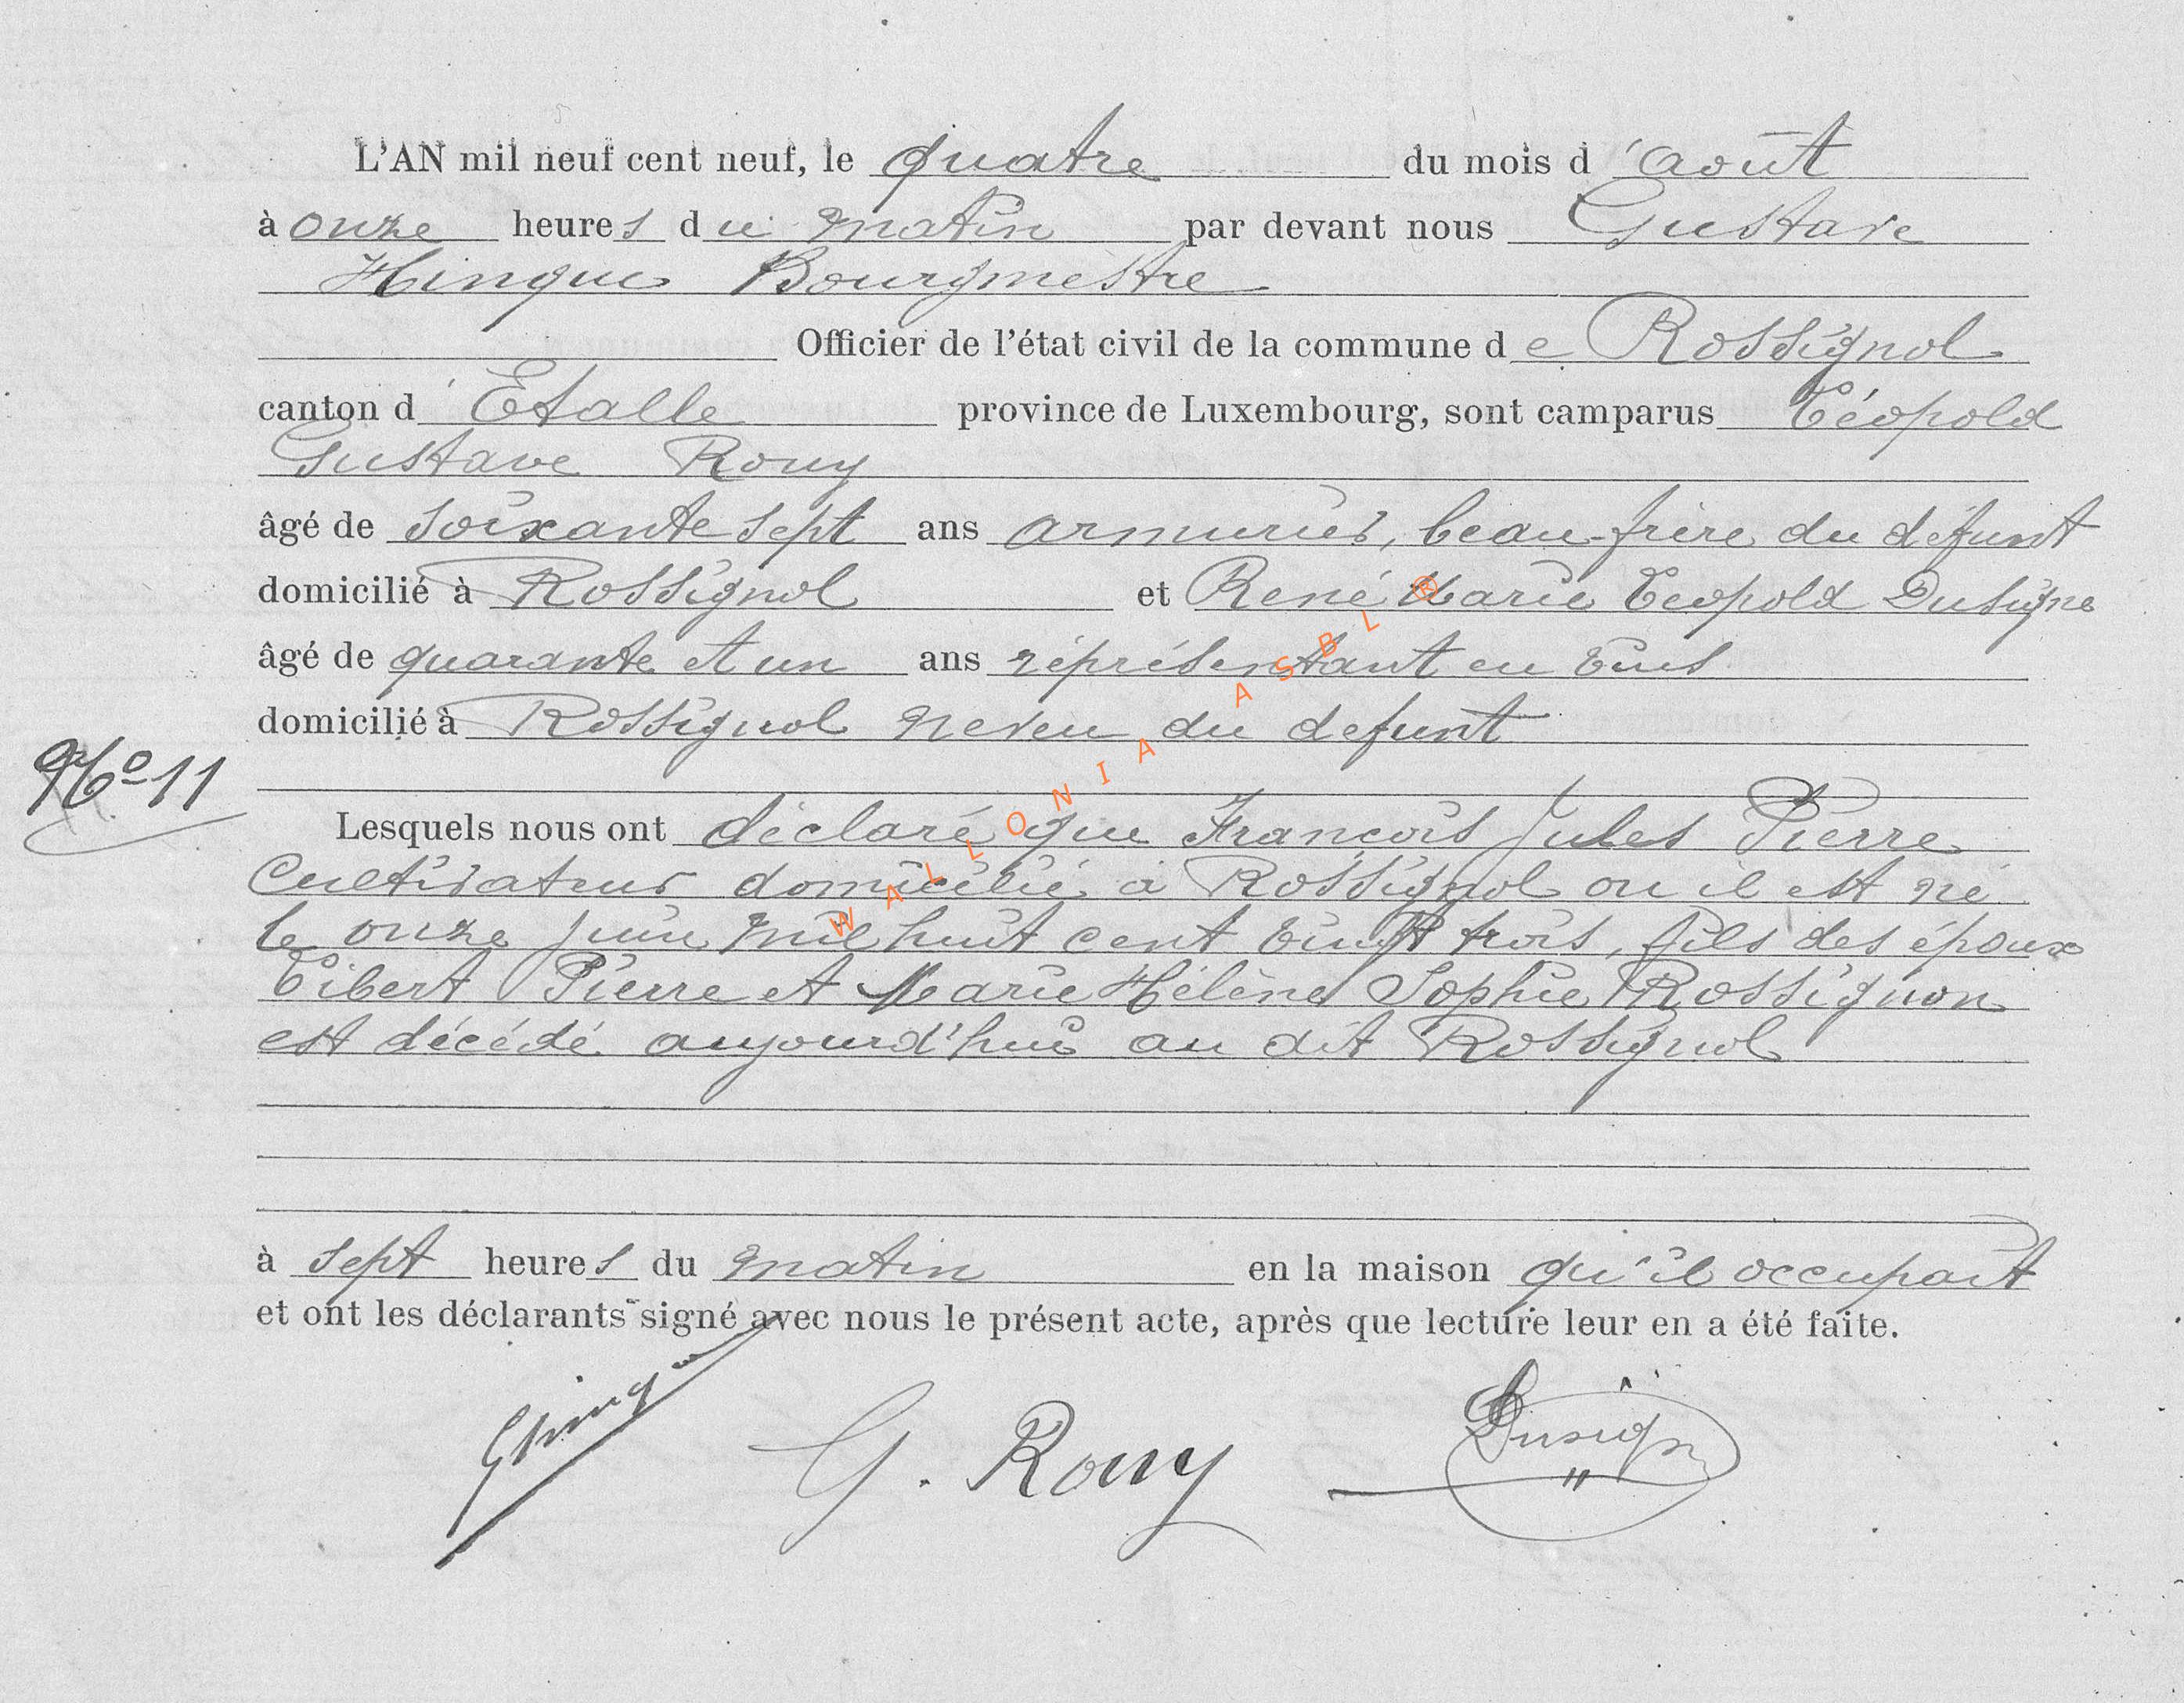 L'AN mil neuf cent neuf, le quatre du mois d'août
à onze heures du matin par devant nous Gustave
Hinque Bourgmestre
Officier de l'état civil de la commune de Rossignol
canton d'Etalle province de Luxembourg, sont camparus Léopold
Gustave Rouy
âgé de soixante sept ans armurier, beau-frère du défunt
domicilié à Rossignol et René Marie Leopold Dusigne
âgé de quarante et un ans réprésentant en vins
domicilié à Rossignol neveu du defunt
No 11
Lesquels nous ont déclaré que François Jules Pierre
Cultivateur domicilié à Rossignol ou il est né
le onze juin mil huit cent vingt trois, fils des époux
Libert Pierre et Marie Hélène Sophie Rossignon
est décédé aujourd'hui au dit Rossignol
à sept heures du matin en la maison qu'il occupait
et ont les déclarants signé avec nous le présent acte, après que lecture leur en a été faite.
G. Rouy
WALLONIA ASBL ®